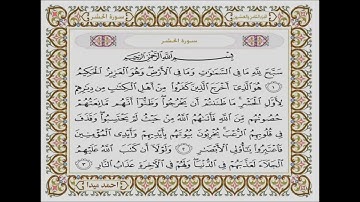 سورة الحشر
سورة الحشر
بِسْمِ اللَّهِ الرَّحْمَٰنِ الرَّحِيمِ
سَبَّحَ لِلَّهِ مَا فِي السَّمَاوَاتِ وَمَا فِي الْأَرْضِ وَهُوَ الْعَزِيزُ الْحَكِيمُ
١ هُوَ الَّذِي أَخْرَجَ الَّذِينَ كَفَرُوا مِنْ أَهْلِ الْكِتَابِ مِن دِيَارِهِمْ
لِأَوَّلِ الْحَشْرِ مَا ظَنَنتُمْ أَن يَخْرُجُوا وَظَنُّوا أَنَّهُم مَّانِعَتُهُمْ
حُصُونُهُم مِّنَ اللَّهِ فَأَتَاهُمُ اللَّهُ مِنْ حَيْثُ لَمْ يَحْتَسِبُوا وَقَذَفَ
فِي قُلُوبِهِمُ الرُّعْبَ يُخْرِبُونَ بُيُوتَهُم بِأَيْدِيهِمْ وَأَيْدِي الْمُؤْمِنِينَ
فَاعْتَبِرُوا يَا أُولِي الْأَبْصَارِ ٢ وَلَوْلَا أَن كَتَبَ اللَّهُ عَلَيْهِمُ
الْجَلَاءَ لَعَذَّبَهُمْ فِي الدُّنْيَا وَلَهُمْ فِي الْآخِرَةِ عَذَابُ النَّارِ ٣
احمد عبدا